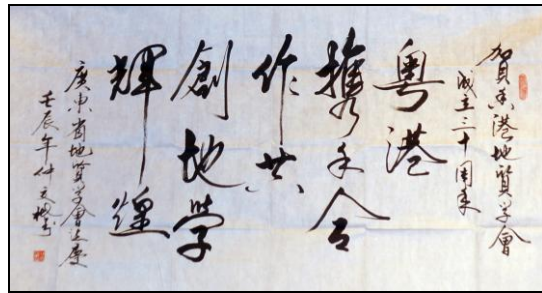 賀香港地質学會
成立三十周年
粵港
攜手合
作共
創地学
輝煌
廣東省地質学會
壬辰年仲